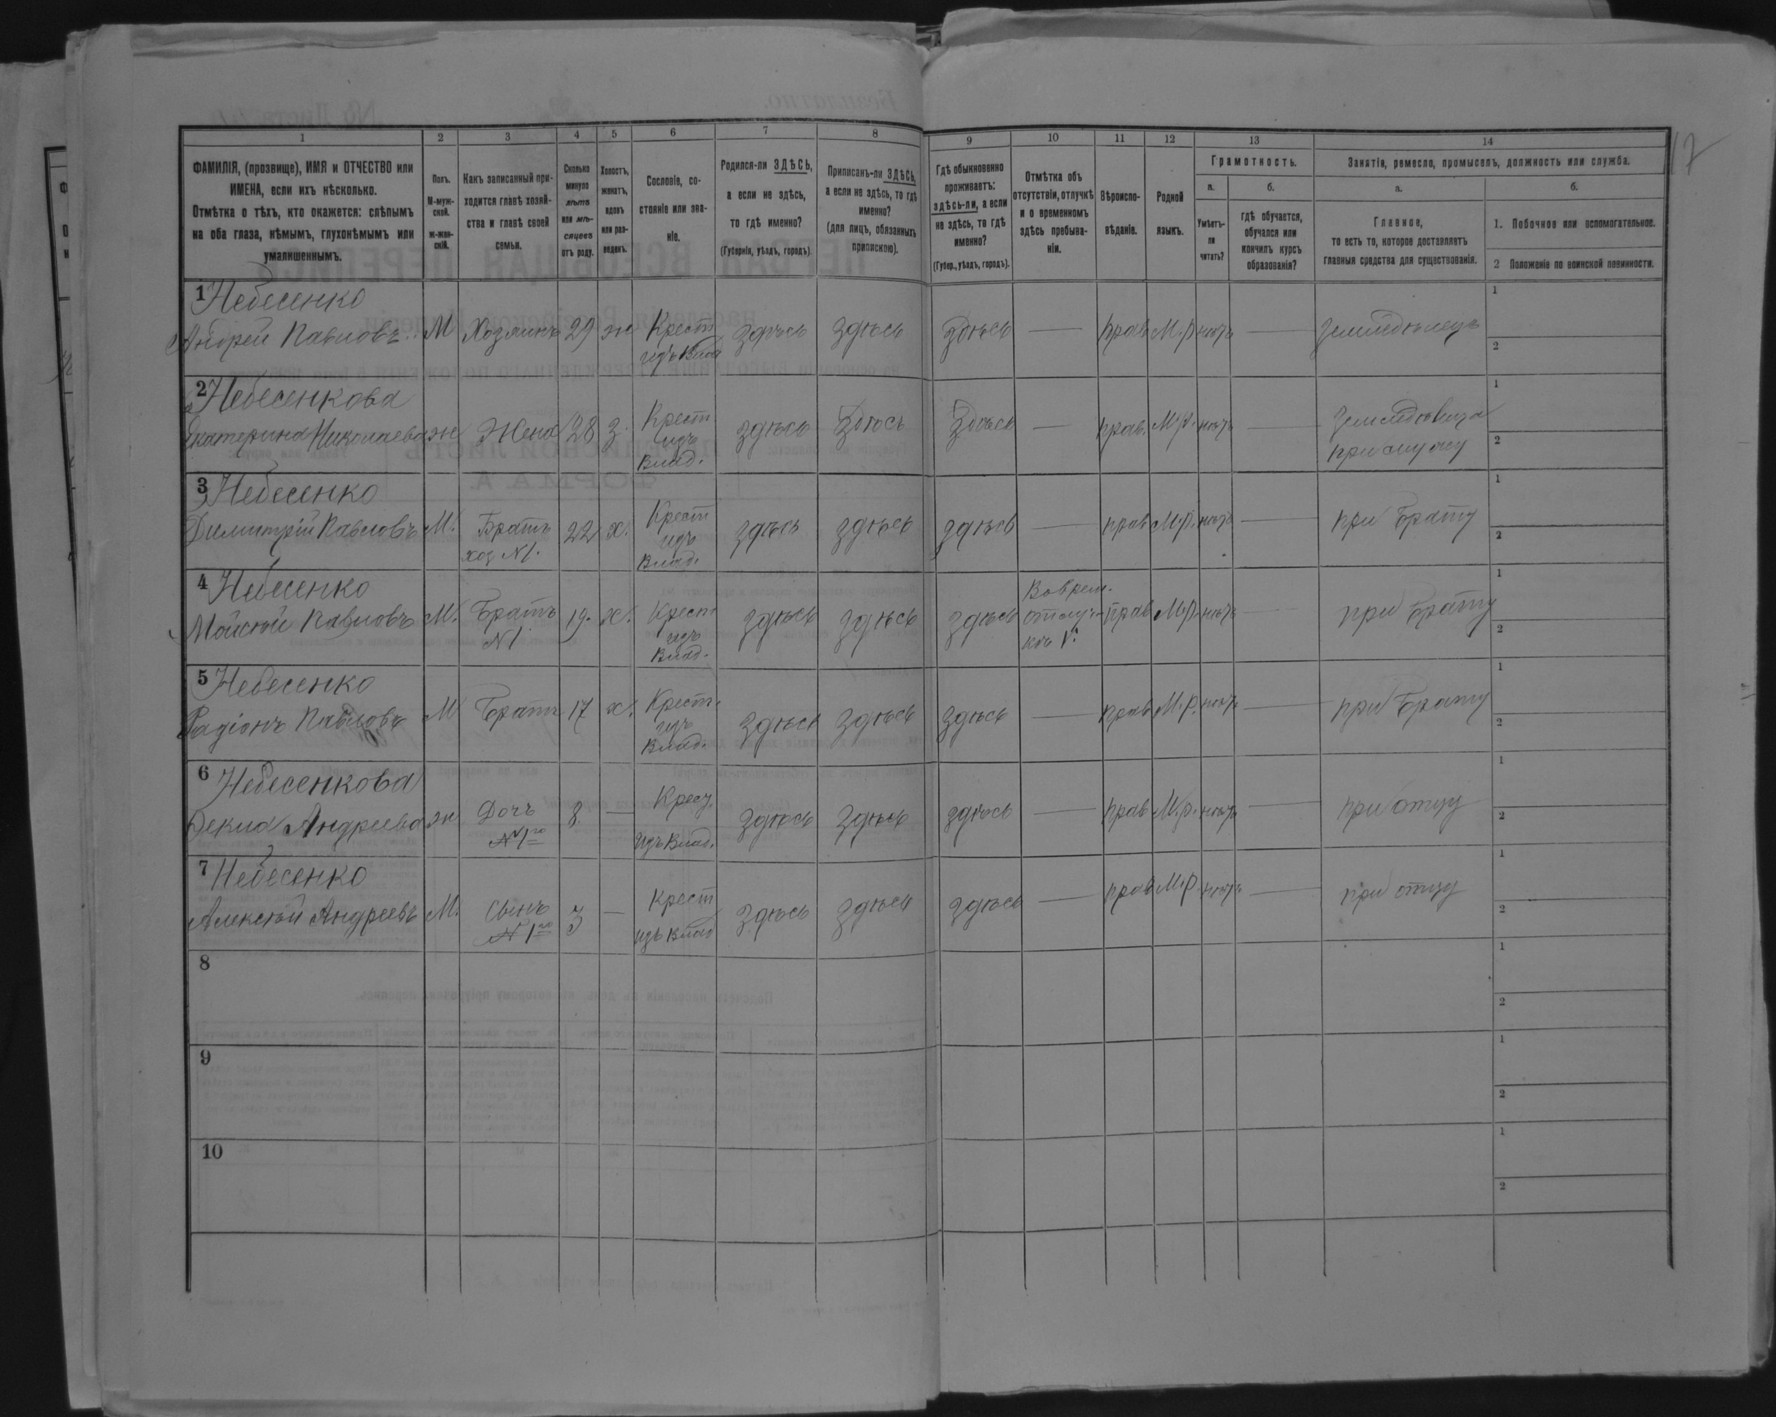 17
1 2 3 4 5 6 7 8 9 10 11 12 13 14
ФАМИЛІЯ, (прозвище), ИМЯ и ОТЧЕСТВО или
ИМЕНА, если ихъ нѣсколько.
Отмѣтка о тѣхъ, кто окажется: слѣпымъ
на оба глаза, нѣмымъ, глухонѣмымъ или
умалишеннымъ.
Полъ.
М-муж-
ской.
ж-жен-
скій.
Какъ записанный при-
ходится главѣ хозяй-
ства и главѣ своей
семьи.
Сколько
минуло
лѣтъ
или мѣ-
сяцевъ
отъ роду.
Холостъ,
женатъ,
вдовъ
или раз-
веденъ.
Сословіе, со-
стояніе или зва-
ніе.
Родился-ли ЗДѢСЬ,
а если не здѣсь,
то гдѣ именно?
(Губернія, уѣздъ, городъ).
Приписанъ-ли ЗДѢСЬ,
а если не здѣсь, то гдѣ
именно?
(для лицъ, обязанныхъ
припискою).
Гдѣ обыкновенно
проживаетъ:
здѣсь-ли, а если
не здѣсь, то гдѣ
именно?
(Губер., уѣздъ, городъ).
Отмѣтка объ
отсутствіи, отлучкѣ
и о временномъ
здѣсь пребыва-
ніи.
Вѣроиспо-
вѣданіе.
Родной
языкъ.
Грамотность.
а.
Умѣетъ-
ли
читать?
б.
гдѣ обучается,
обучался или
кончилъ курсъ
образованія?
Занятія, ремесло, промыселъ, должность или служба.
а.
Главное,
то есть то, которое доставляетъ
главныя средства для существованія.
б.
1. Побочное или вспомогательное.
2 Положеніе по воинской повинности.
1 Небесенко
Андрей Павловъ М Хозяинъ 29 ж Крест здѣсь здѣсь здѣсь — прав М.р. нѣтъ — Земледѣлецъ
изъ влад
1
2
2 Небесенкова
Екатерина Николаева ж Жена 28 з. Крест здѣсь здѣсь здѣсь — прав. М.р. нѣтъ —
изъ
влад.
при мужу
1
2
3 Небесенко
Димитрій Павловъ М. Братъ 22 х. Крест здѣсь здѣсь здѣсь — прав М.р. нѣтъ — при брату
хоз. N1. изъ
влад.
1
2
4 Небесенко
Мойсѣй Павловъ М. Братъ 19. х. Крест здѣсь здѣсь здѣсь прав М.р. нѣтъ — при брату
N1 изъ
влад.
Во врем.
отлуч-
1
2
5 Небесенко
Радіонъ Павловъ М Братъ 17 х. Крест. здѣсь здѣсь здѣсь — прав М.р. нѣтъ — при брату
изъ
влад.
1
2
6 Небесенкова
Андреева ж Дочъ 8 — Крест здѣсь здѣсь здѣсь — прав М.р. нѣтъ — при отцу
N1го изъ влад.
1
2
7 Небесенко
Алексѣй Андреевъ М. Сынъ 3 — Крест здѣсь здѣсь здѣсь — прав М.р. нѣтъ — при отцу
N1го изъ влад
1
2
8
1
2
9
1
2
10
1
2